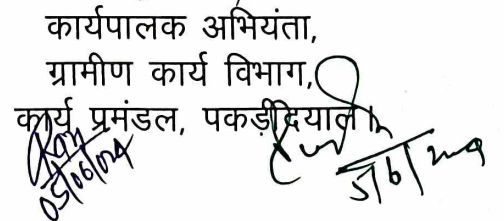 कार्यपालक अभियंता,
ग्रामीण कार्य विभाग,
कार्य प्रमंडल, पकड़ीदयाल।
05/06/024